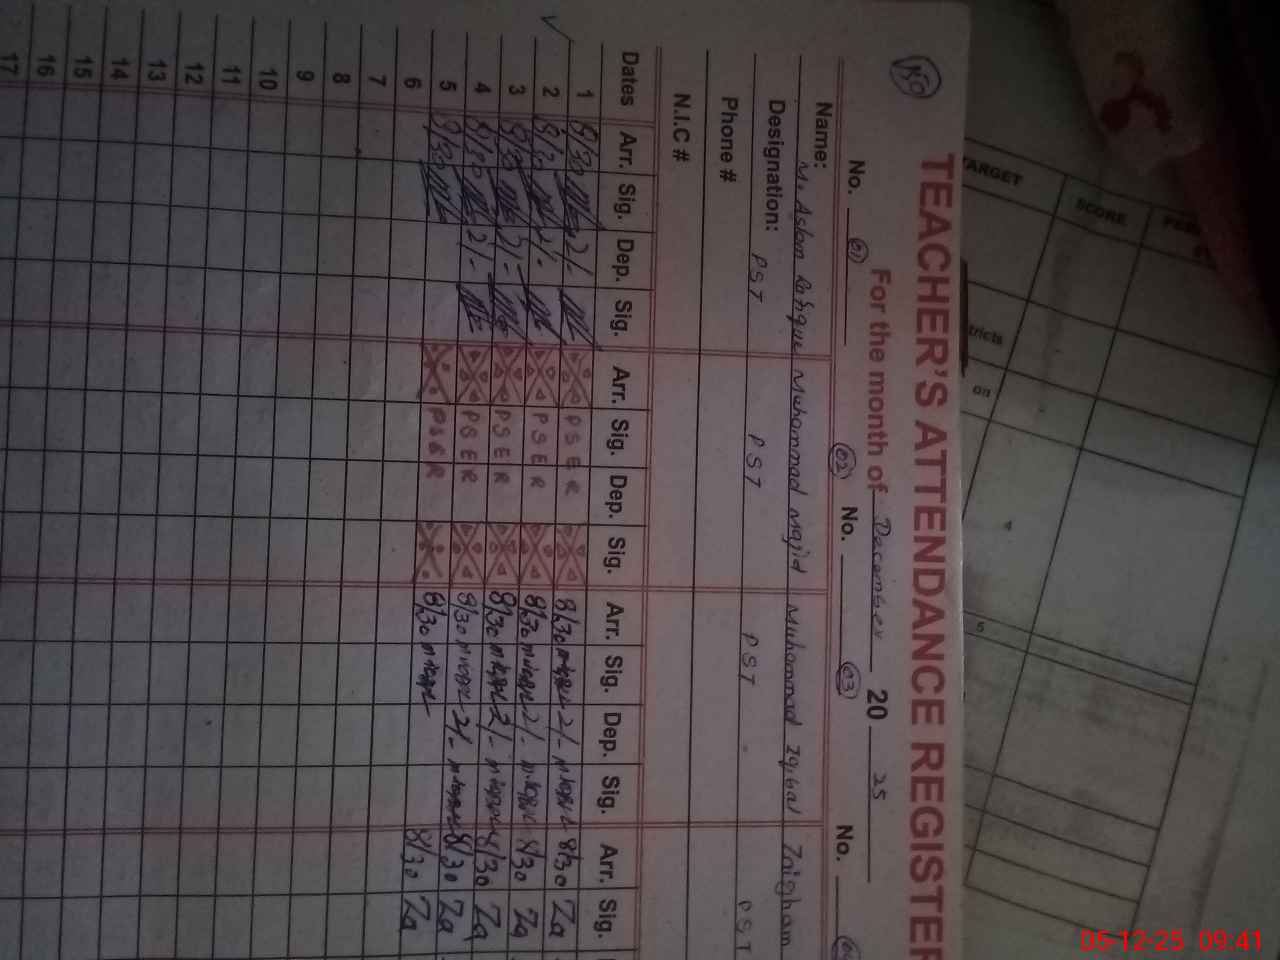 150
TEACHER'S ATTENDANCE REGISTER
For the month of December 20 25
No. 01 No. 02 No. 03 No.
Name: M. Aslam Rafique Muhammad Majid Muhammad Iqbal Zaigham
Designation: PST PST PST PST
Phone #
N.I.C #
Dates Arr. Sig. Dep. Sig. Arr. Sig. Dep. Sig. Arr. Sig. Dep. Sig. Arr. Sig.
1 8/30 2/- P S E R 8/30 2/- 8/30 Za
2 8/30 2/- P S E R 8/30 2/- 8/30 Za
3 8/30 2/- P S E R 8/30 2/- 8/30 Za
4 8/30 2/- P S E R 8/30 2/- 8/30 Za
5 8/30 P S E R 8/30 8/30 Za
6
7
8
9
10
11
12
13
14
15
16
17
TARGET
SCORE
tricts
on
4
5
05-12-25 09:41